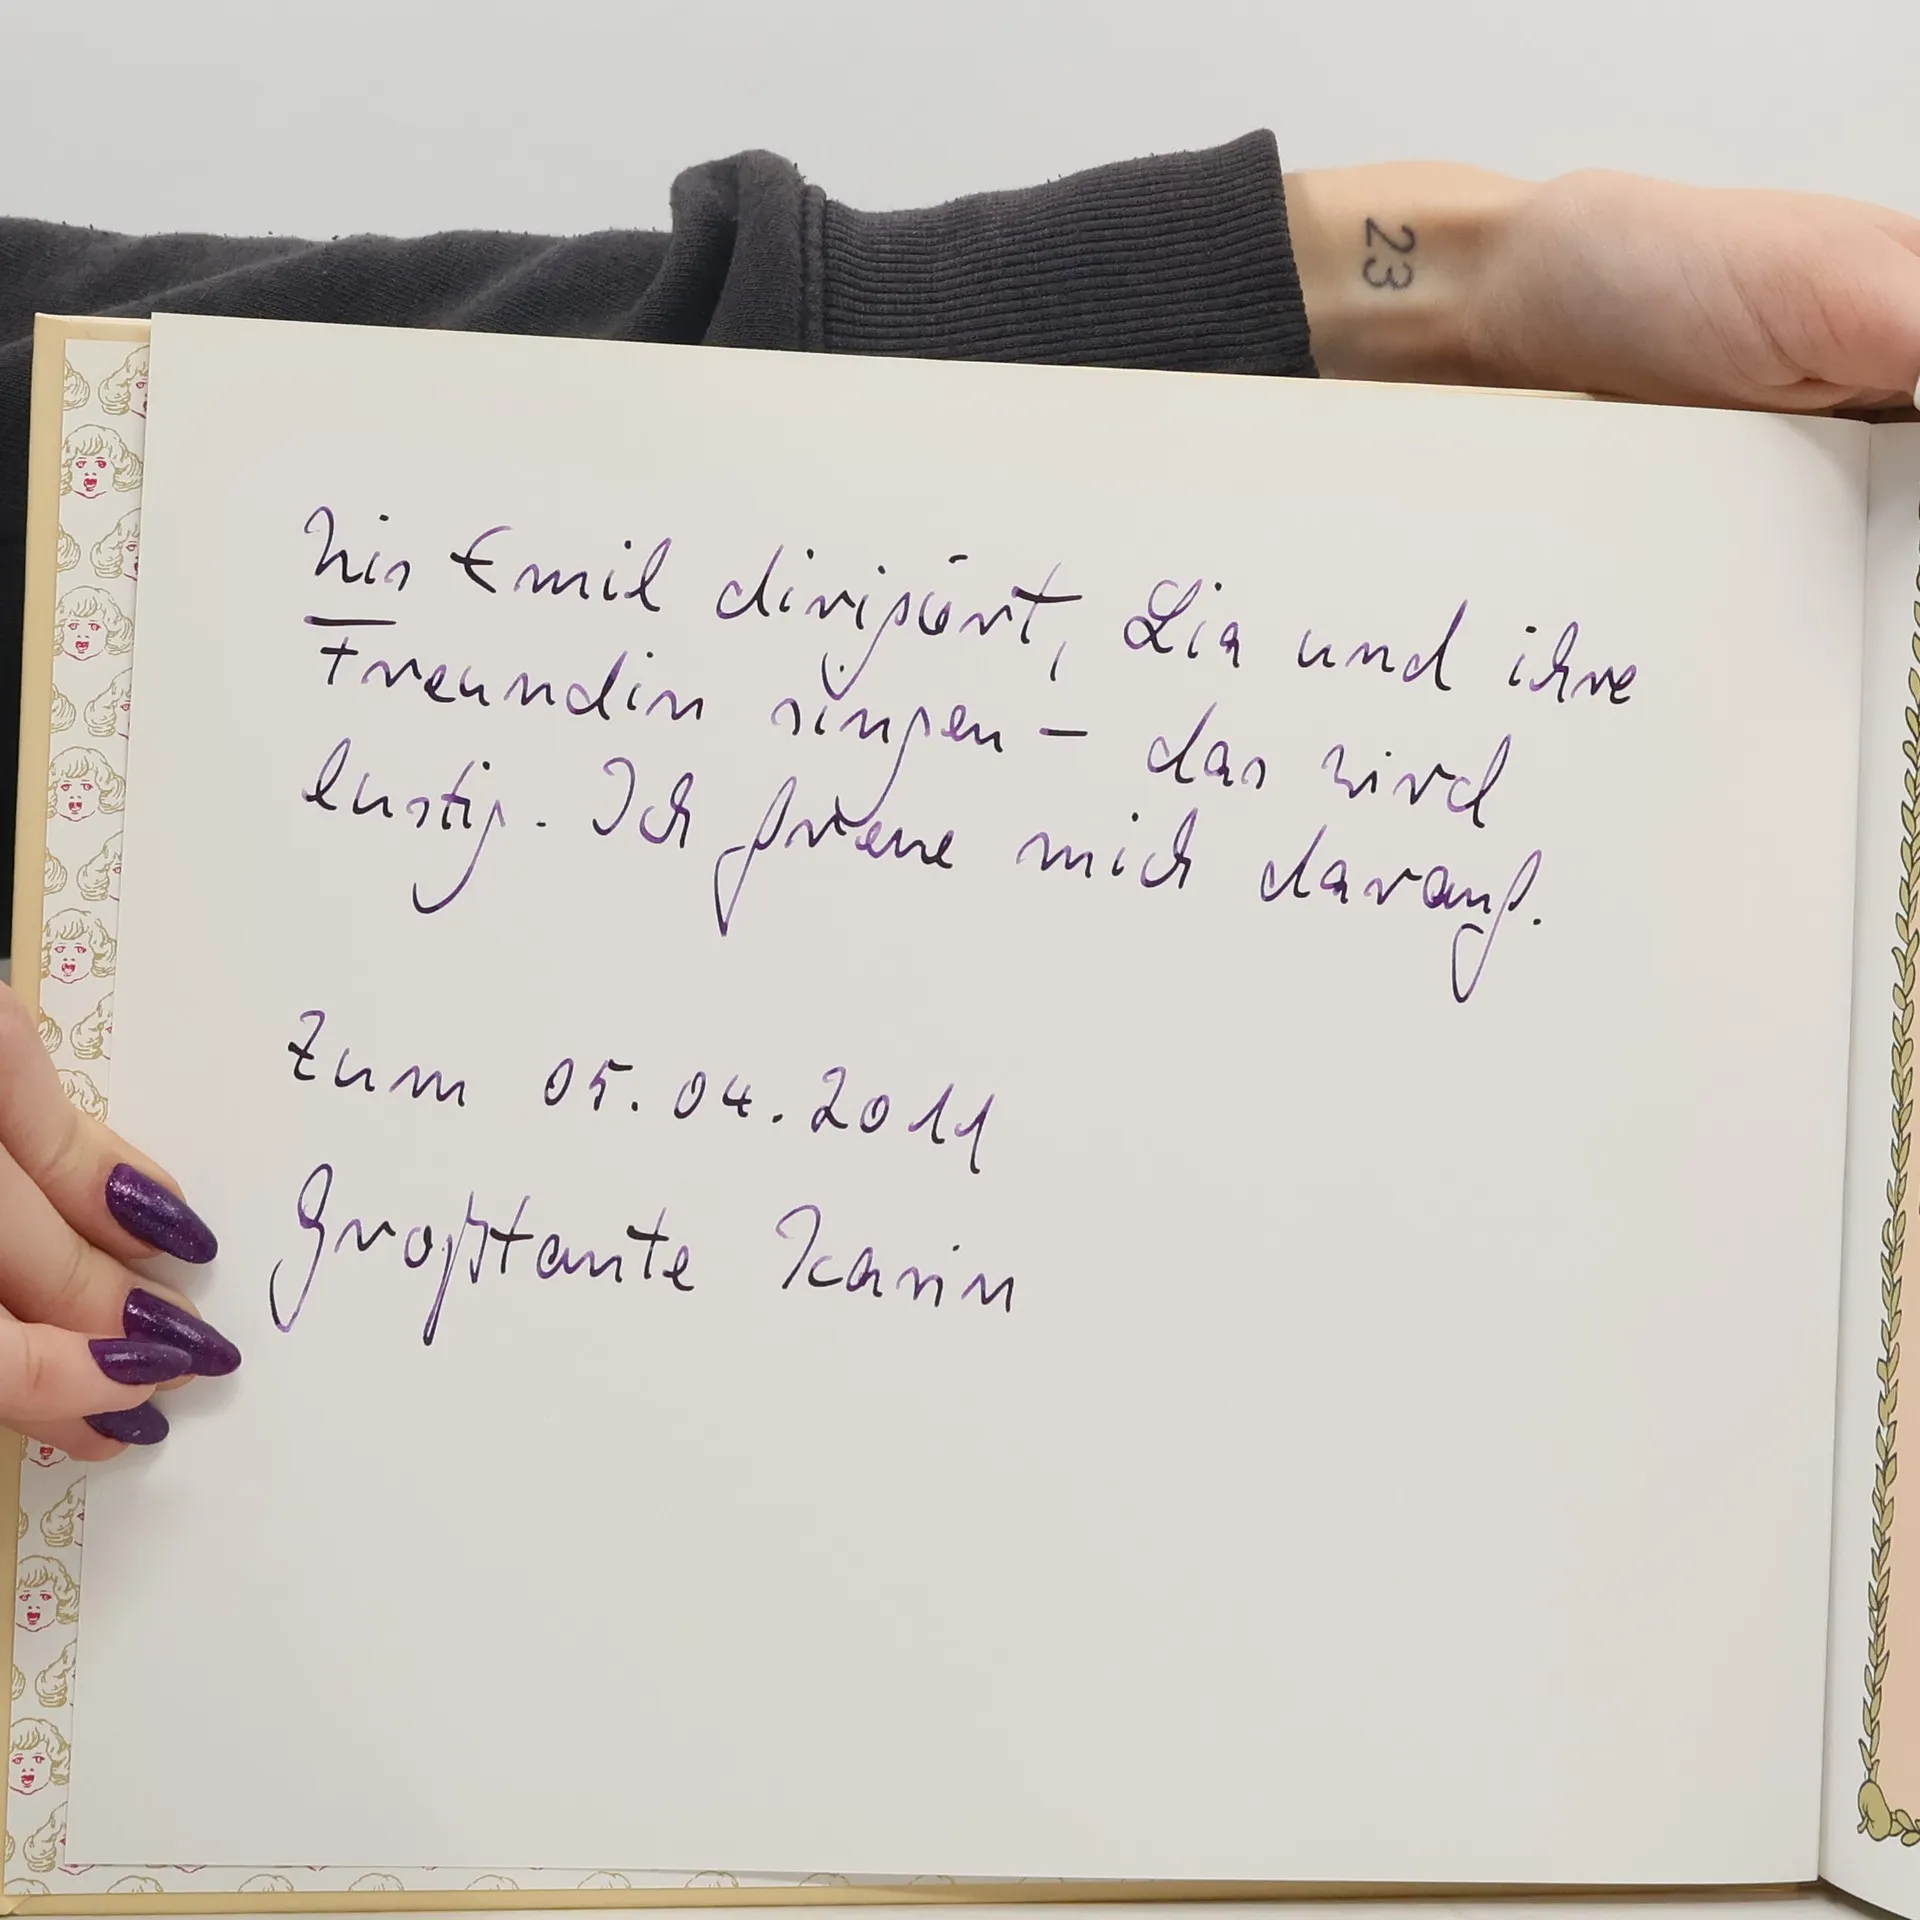 23
Wie Emil dirigiert, Lia und ihre
Freundin singen – das wird
lustig. Ich freue mich darauf.
Zum 05.04.2011
Großtante Karin